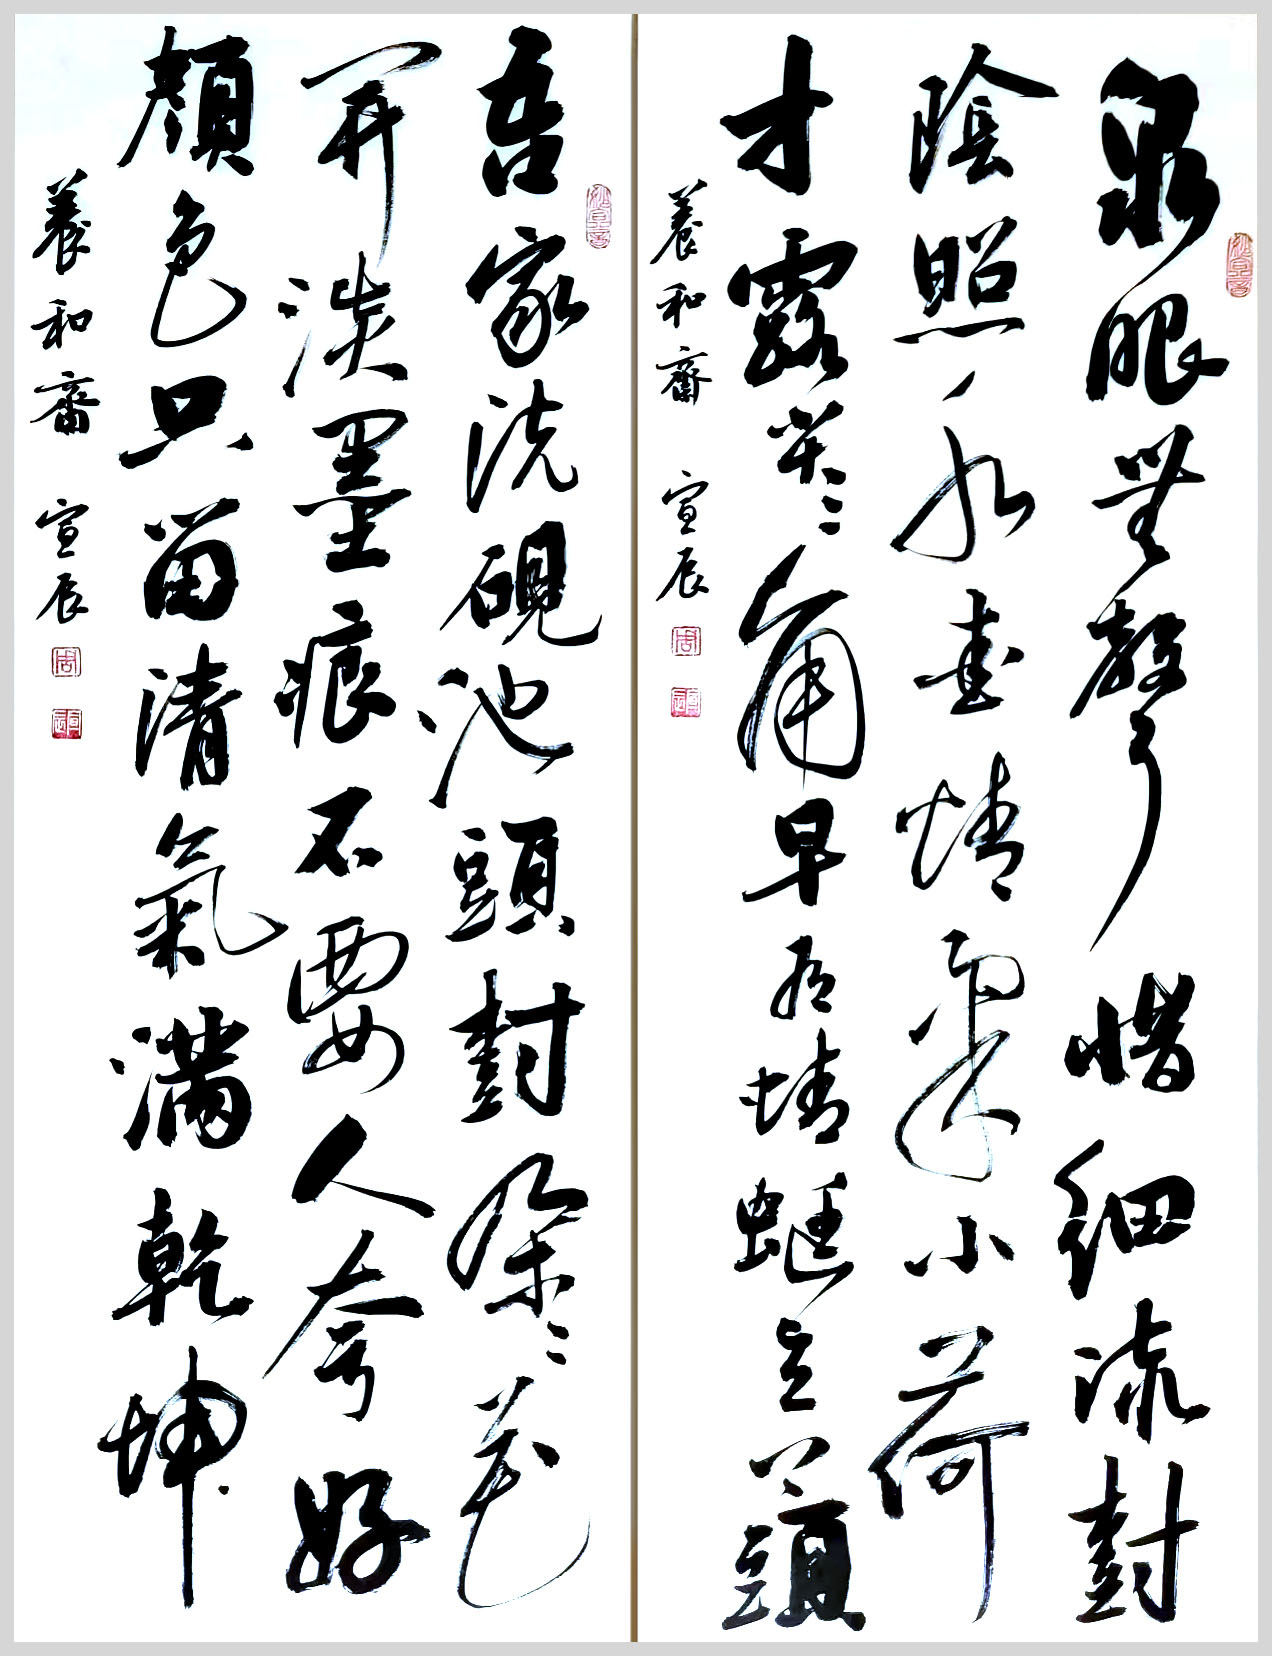 泉眼無聲惜細流樹
陰照水愛晴柔小荷
才露尖々角早有蜻蜓立上頭
養和齋 宣辰
吾家洗硯池頭樹朵々花
開淡墨痕不要人夸好
顏色只留清氣滿乾坤
養和齋 宣辰